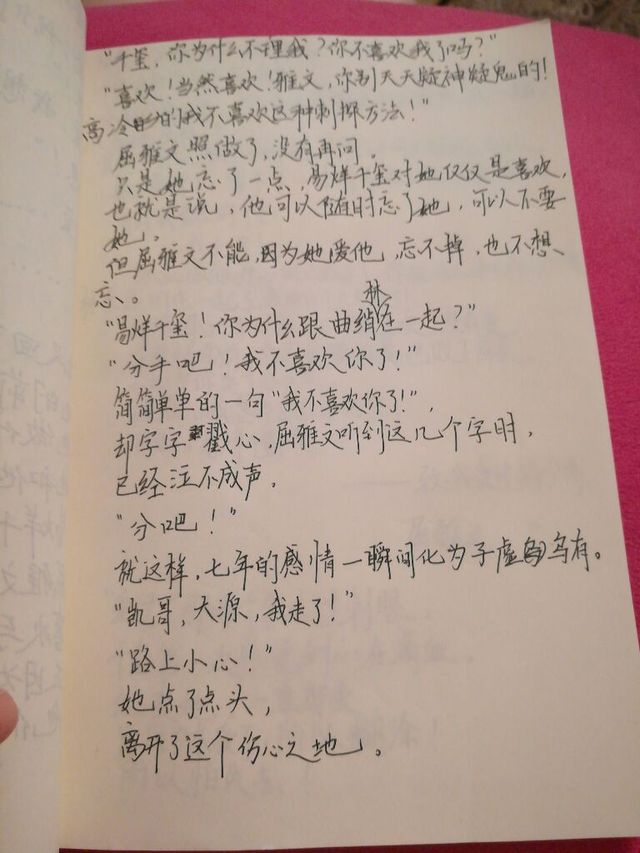 "千玺，你为什么不理我？你不喜欢我了吗？"
"喜欢！当然喜欢！雅文，你别天天疑神疑鬼的！
高冷的我不喜欢这种刺探方法！"
屈雅文照做了，没有再问。
只是她忘了一点，易烊千玺对她仅仅是喜欢，
也就是说，他可以随时忘了她，可以不要
她。
但屈雅文不能，因为她爱他，忘不掉，也不想
忘。
"易烊千玺！你为什么跟曲绡林在一起？"
"分手吧！我不喜欢你了！"
简简单单的一句"我不喜欢你了！"，
却字字戳心，屈雅文听到这几个字时，
已经泣不成声。
"分吧！"
就这样，七年的感情一瞬间化为子虚乌有。
"凯哥，大源，我走了！"
"路上小心！"
她点了点头，
离开了这个伤心之地。